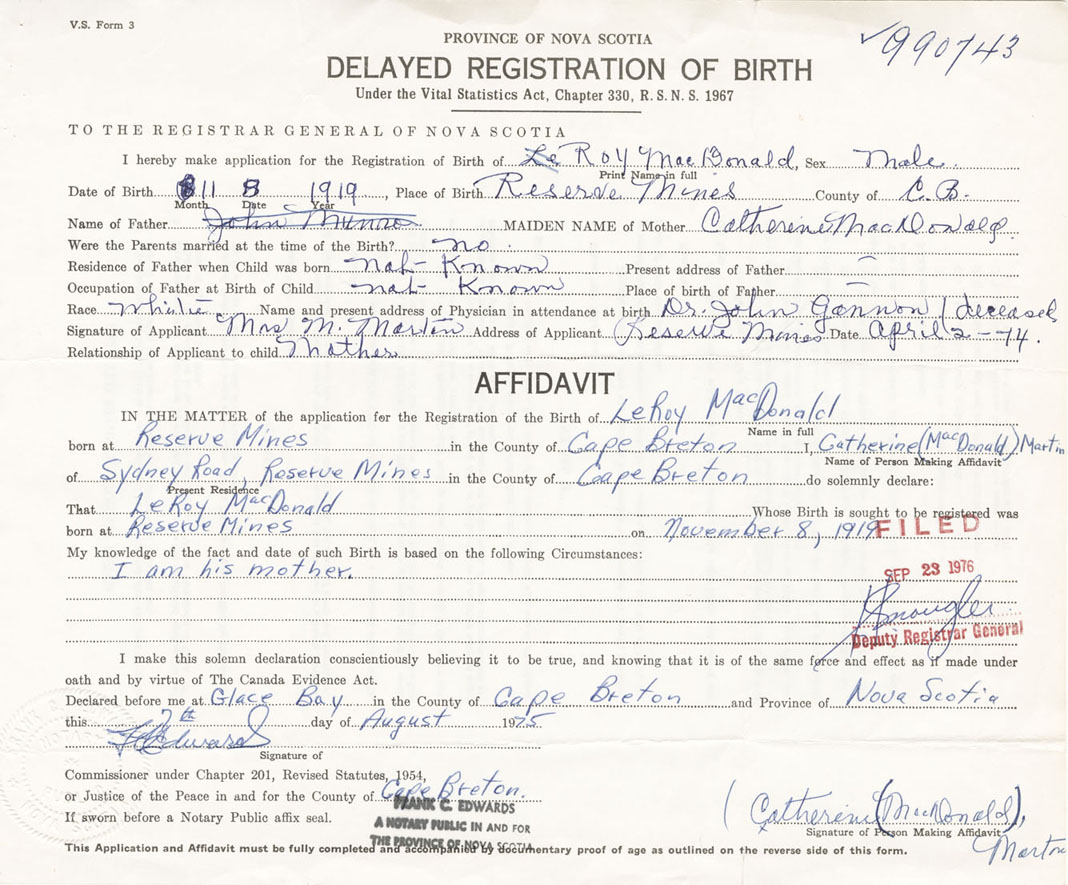 V.S. Form 3
✓990743
PROVINCE OF NOVA SCOTIA
DELAYED REGISTRATION OF BIRTH
Under the Vital Statistics Act, Chapter 330, R.S.N.S. 1967
TO THE REGISTRAR GENERAL OF NOVA SCOTIA
I hereby make application for the Registration of Birth of Le Roy MacDonald, Sex Male
Print Name in full
Date of Birth 11 8 1919, Place of Birth Reserve Mines County of C.B.
Month Date Year
Name of Father John Munro MAIDEN NAME of Mother Catherine MacDonald
Were the Parents married at the time of the Birth? no.
Residence of Father when Child was born not Known Present address of Father —
Occupation of Father at Birth of Child not Known Place of birth of Father —
Race White Name and present address of Physician in attendance at birth Dr. John Gannon / deceased
Signature of Applicant Mrs M. Martin Address of Applicant Reserve Mines Date April 2 - 74.
Relationship of Applicant to child Mother
AFFIDAVIT
IN THE MATTER of the application for the Registration of the Birth of LeRoy MacDonald
Name in full
born at Reserve Mines in the County of Cape Breton I, Catherine (MacDonald) Martin
Name of Person Making Affidavit
of Sydney Road, Reserve Mines in the County of Cape Breton do solemnly declare:
Present Residence
That LeRoy MacDonald Whose Birth is sought to be registered was
born at Reserve Mines on November 8, 1919
FILED
My knowledge of the fact and date of such Birth is based on the following Circumstances:
I am his mother.
SEP 23 1976
Deputy Registrar General
I make this solemn declaration conscientiously believing it to be true, and knowing that it is of the same force and effect as if made under
oath and by virtue of The Canada Evidence Act.
Declared before me at Glace Bay in the County of Cape Breton and Province of Nova Scotia
this 7th day of August 1975
F C Edwards
Signature of
Commissioner under Chapter 201, Revised Statutes, 1954,
or Justice of the Peace in and for the County of Cape Breton.
If sworn before a Notary Public affix seal.
FRANK C. EDWARDS
A NOTARY PUBLIC IN AND FOR
THE PROVINCE OF NOVA SCOTIA
(Catherine (MacDonald),
Martin
Signature of Person Making Affidavit
This Application and Affidavit must be fully completed and accompanied by documentary proof of age as outlined on the reverse side of this form.